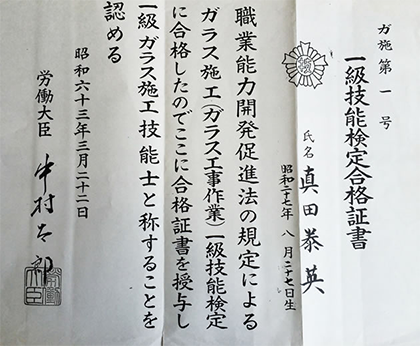 ガ施第一号
一級技能検定合格証書
氏名 真田恭英
昭和二十七年 八月二十七日生
職業能力開発促進法の規定による
ガラス施工(ガラス工事作業)一級技能検定
に合格したのでここに合格証書を授与し
一級ガラス施工技能士と称することを
認める
昭和六十三年三月二十二日
労働大臣 中村太郎
労働大臣